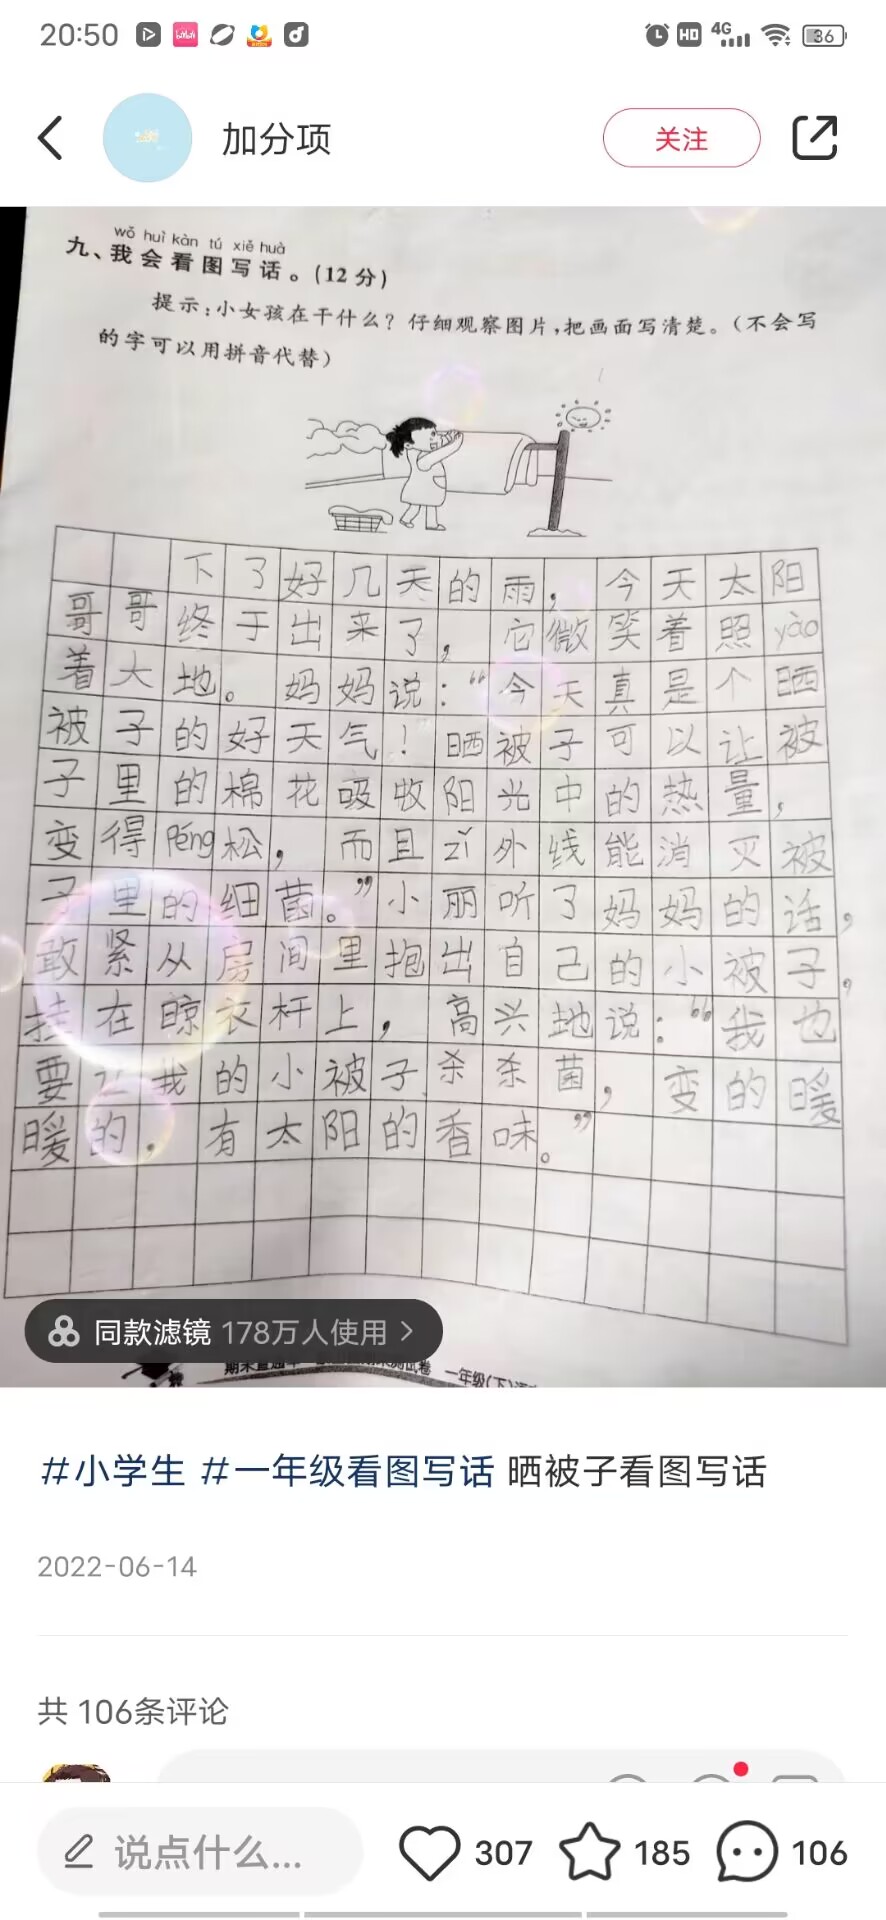 20:50
HD 4G 36
加分项
关注
wǒ huì kàn tú xiě huà
九、我会看图写话。(12分)
提示:小女孩在干什么?仔细观察图片,把画面写清楚。(不会写
的字可以用拼音代替)
下了好几天的雨,今天太阳
哥哥终于出来了,它微笑着照yào
着大地。妈妈说:“今天真是个晒
被子的好天气!晒被子可以让被
子里的棉花吸收阳光中的热量,
变得péng松,而且zǐ外线能消灭被
子里的细菌。”小丽听了妈妈的话,
敢紧从房间里抱出自己的小被子,
挂在晾衣杆上,高兴地说:“我也
要让我的小被子杀杀菌,变的暖
暖的,有太阳的香味。”
同款滤镜 178万人使用 >
一年级(下)
#小学生 #一年级看图写话 晒被子看图写话
2022-06-14
共 106条评论
说点什么... 307 185 106